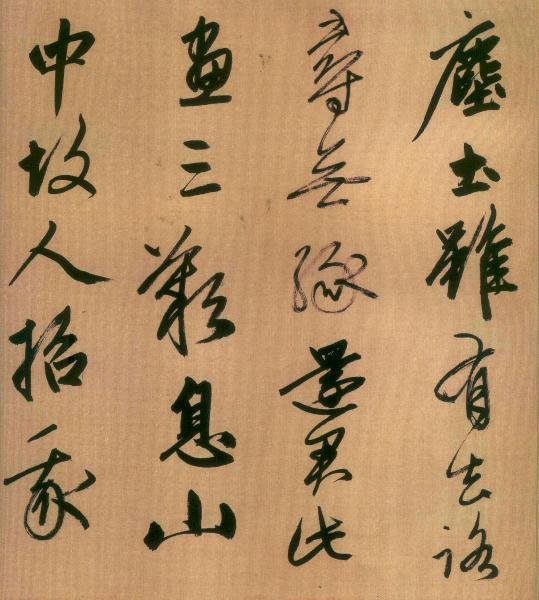 塵土雖有去路
尋無緣還君此
畫三歎息山
中故人招我